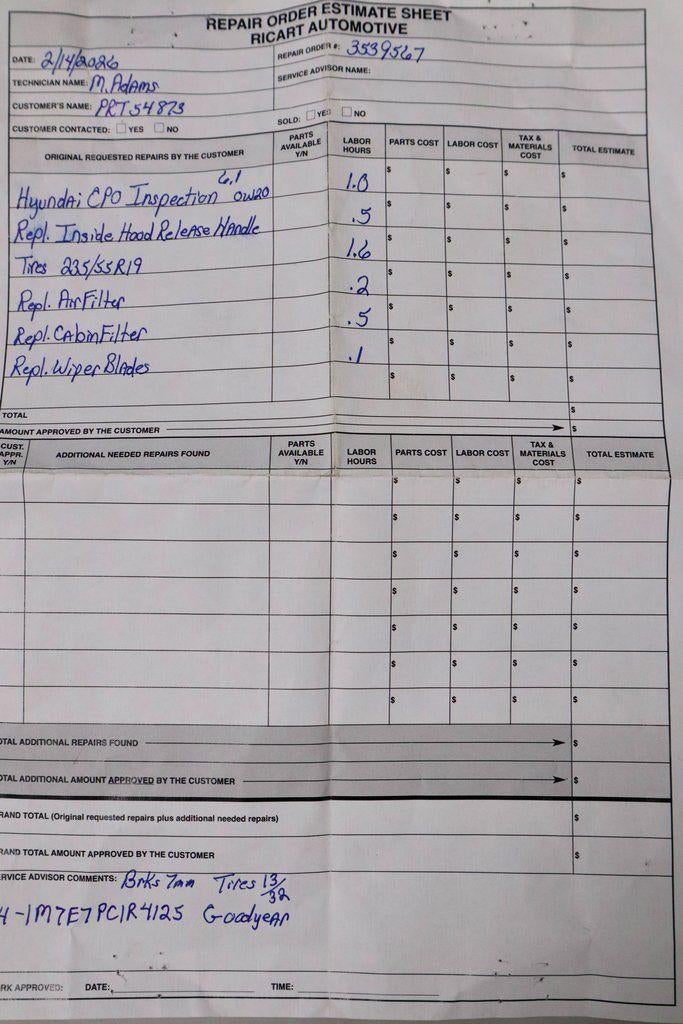 REPAIR ORDER ESTIMATE SHEET
RICART AUTOMOTIVE
DATE: 2/14/2026
REPAIR ORDER #: 3539567
TECHNICIAN NAME: M. Adams
SERVICE ADVISOR NAME:
CUSTOMER'S NAME: PRT54873
CUSTOMER CONTACTED: YES NO
SOLD: YES NO
ORIGINAL REQUESTED REPAIRS BY THE CUSTOMER PARTS AVAILABLE Y/N LABOR HOURS PARTS COST LABOR COST TAX & MATERIALS COST TOTAL ESTIMATE
Hyundai CPO Inspection 6.1 0W20 1.0 $ $ $ $
Repl. Inside Hood Release Handle .5 $ $ $ $
Tires 235/55R19 1.6 $ $ $ $
Repl. Air Filter .2 $ $ $ $
Repl. Cabin Filter .5 $ $ $ $
Repl. Wiper Blades .1 $ $ $ $
$ $ $ $
TOTAL $
AMOUNT APPROVED BY THE CUSTOMER $
CUST. APPR. Y/N ADDITIONAL NEEDED REPAIRS FOUND PARTS AVAILABLE Y/N LABOR HOURS PARTS COST LABOR COST TAX & MATERIALS COST TOTAL ESTIMATE
$ $ $ $
$ $ $ $
$ $ $ $
$ $ $ $
$ $ $ $
$ $ $ $
$ $ $ $
OTAL ADDITIONAL REPAIRS FOUND $
OTAL ADDITIONAL AMOUNT APPROVED BY THE CUSTOMER $
RAND TOTAL (Original requested repairs plus additional needed repairs) $
RAND TOTAL AMOUNT APPROVED BY THE CUSTOMER $
RVICE ADVISOR COMMENTS: Brks 7mm Tires 13/32
4-1M7E7PC1R4125 Goodyear
RK APPROVED: DATE: TIME: